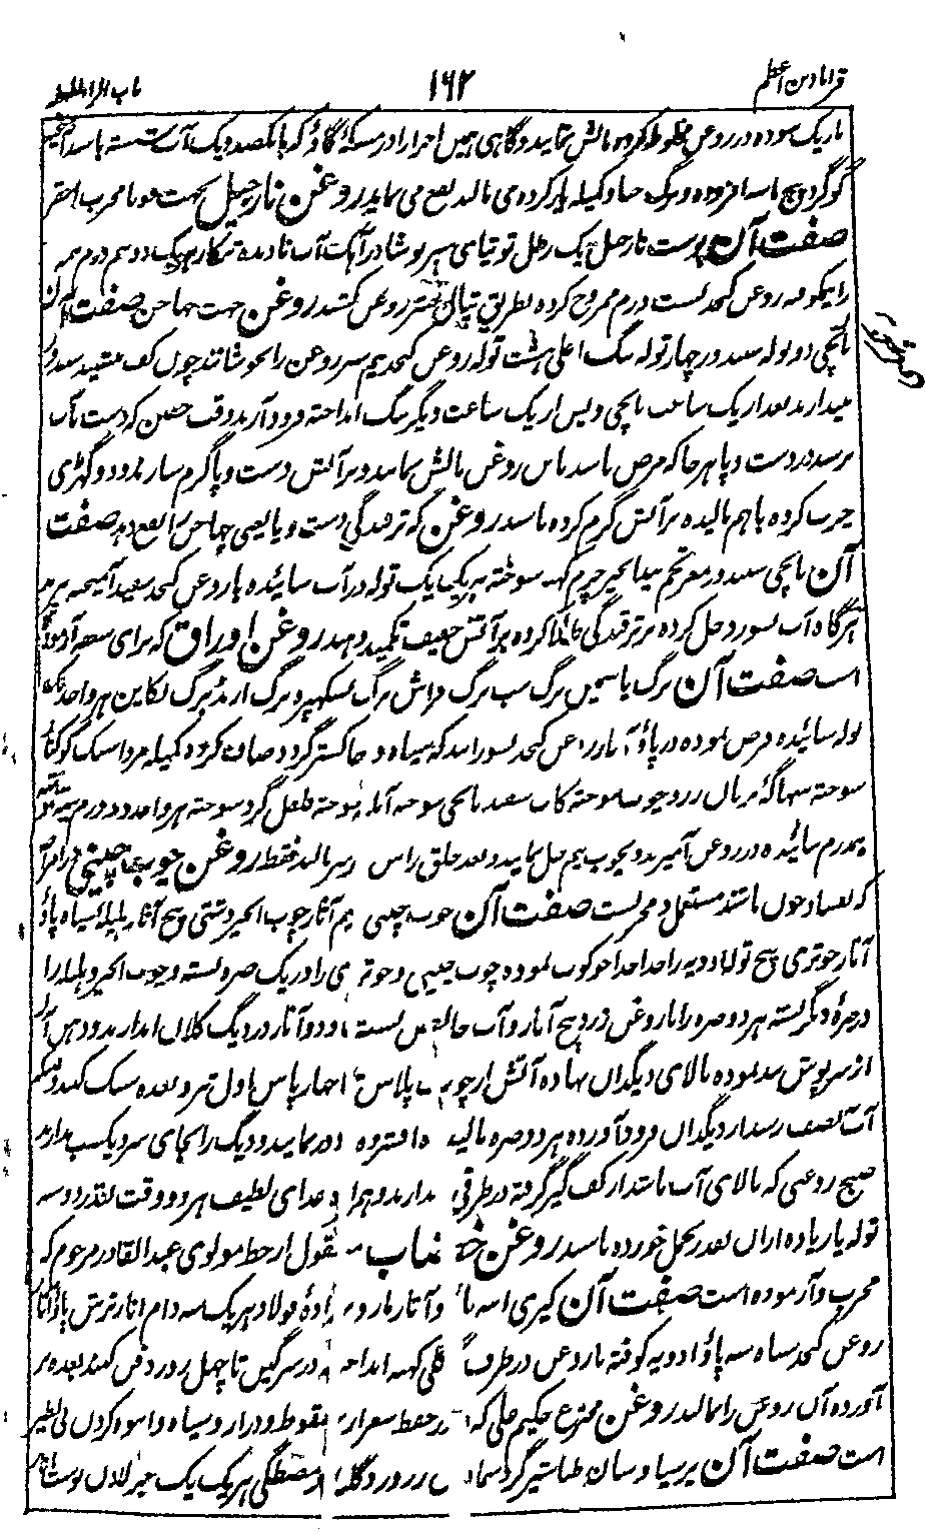 قرابادین اعظم ۱۶۲ باب الراء المهملة
باریک سوده در روغن مخلوط کرده مالش نمایند و گاهی همین اجزا را در مسکهٔ گاؤ که بایکصد و یک آب شسته باشد
گوگرد پنج ماسه افزوده و برگ حنا و کمیله کرده می مالد نفع می نماید روغن نارجیل بجهت مجرب احقر
صفت آن پوست نارجیل یک رطل توتیای سبز نوشادر آهک آب نادیده تنکار هریک دو درم همه
را بکوفته روغن کنجد بست درم ممزوج کرده بطریق پتال جنتر روغن کشند روغن جهت چهاجن صفت
بابچی دو توله سفیدور چهار توله بنگ اعلی هشت توله روغن کنجد نیم سیر روغن را بجوشانند چون کف سفیدور
میدارند بعد از یک ساعت بابچی و پس از یک ساعت دیگر بنگ انداخته فرود آرند وقت خفتن که دست بآب
نرسد در دست و پا هرجا که مرض باشد باین روغن مالش نمایند و بر آتش دست و پا گرم سازند و دو گهڑی
چرب کرده باهم مالیده بر آتش گرم کرده باشد روغن که ترقیدگی دست و پا یعنی چهاجن را نفع دهد صفت
آن بابچی سفیدور مغز تخم بیدانجیر چرم کهنه سوخته هریک یک توله در آب سائیده با روغن کنجد سفید آمیخته
هرگاه آب بسوزد حل کرده بر ترقیدگی طلا کرده بر آتش خفیف تکمید دهند روغن اوراق که برای سعفه آزموده
است صفت آن برگ یاسمین برگ سب برگ فراش برگ سکهپره برگ ارنڈ برگ بکاین هر واحد
توله سائیده قرص نموده در پاؤ آثار روغن کنجد بسوزانند که سیاه و خاکستر گردد صاف کرده کمیله مرداسنگ
سوخته سهاگهٔ بریان زردچوب سوخته کات سفید بابچی سوخته آمله سوخته فلفل گرد سوخته هر واحد دو درم
نیمدرم سائیده در روغن آمیزند و بچوب نیم حل نمایند و بعد حلق راس بر سر مالند فقط روغن چوب چینی در امراض
که بفساد خون باشد مستعمل و مجرب است صفت آن چوب چینی نیم آثار چوب انجیر دشتی پنج آثار بلیلهٔ سیاه پاؤ
آثار جوتری پنج توله ادویه را جدا جدا جوکوب نموده چوب چینی و جوتری را در یک صره بسته و چوب انجیر و بلیله را
در صرهٔ دیگر بسته هر دو صره را با روغن زرد پنج آثار و آب خالص بست و دو آثار در دیگ کلان اندازند و دهن آن
از سرپوش بند نموده بالای دیگدان نهاده آتش از چوب پلاس تا چهار پاس اول تیز و بعده سبک کنند
آب نصف رسد از دیگدان فرود آورده هر دو صره مالیده و افشرده دور نمایند و دیگ را بجای سرد یکشب بدارند
صبح روغنی که بالای آب باشد از کفگیر گرفته در ظرفی بدارند و همراه غذای لطیف هر دو وقت بقدر دو سه
توله یا زیاده ازان بقدر تحمل خورده باشد روغن خضاب منقول از خط مولوی عبد القادر مرحوم که
مجرب و آزموده است صفت آن کیری انبه دو آثار مازو برادهٔ فولاد هریک سه دام انار ترش پاؤ آثار
روغن کنجد سیاه سه پاؤ ادویه کوفته با روغن در ظرف گلی کهنه انداخته در سرگین تا چهل روز دفن کنند بعده بر
آورده آن روغن را بمالند روغن مخترع حکیم علی که در حفظ شعر از سقوط و دراز و سیاه و انبوه کردن بی نظیر
است صفت آن پرسیاوشان طباشیر گرد سماق زرورد گلنار مصطگی هریک یک جزء لادن پوست